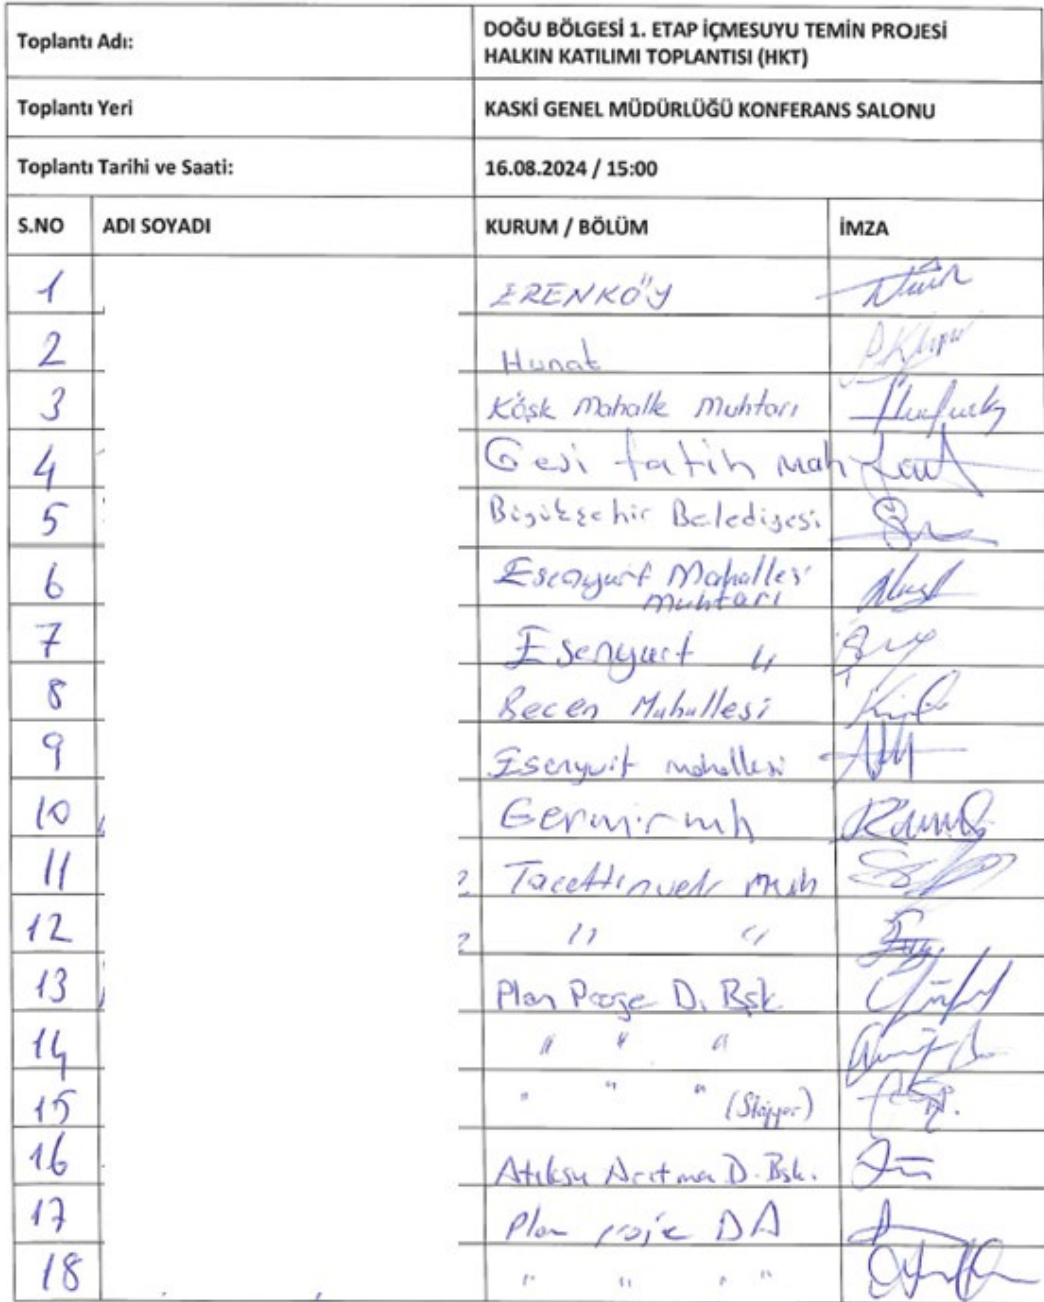 Toplantı Adı:
DOĞU BÖLGESİ 1. ETAP İÇMESUYU TEMİN PROJESİ
HALKIN KATILIMI TOPLANTISI (HKT)
Toplantı Yeri
KASKİ GENEL MÜDÜRLÜĞÜ KONFERANS SALONU
Toplantı Tarihi ve Saati:
16.08.2024 / 15:00
S.NO ADI SOYADI KURUM / BÖLÜM İMZA
1 ERENKÖY
2 Hunat
3 Köşk Mahalle Muhtarı
4 Gesi fatih mah
5 Büyükşehir Belediyesi
6 Esenyurt Mahallesi
muhtarı
7 Esenyurt "
8 Becen Mahallesi
9 Esenyurt mahallesi
10 Germir mh
11 Tacettinveli Mah
12 " "
13 Plan Proje D. Bşk.
14 " " "
15 " " " (Stajyer)
16 Atıksu Arıtma D. Bşk.
17 Plan proje DA
18 " " " "